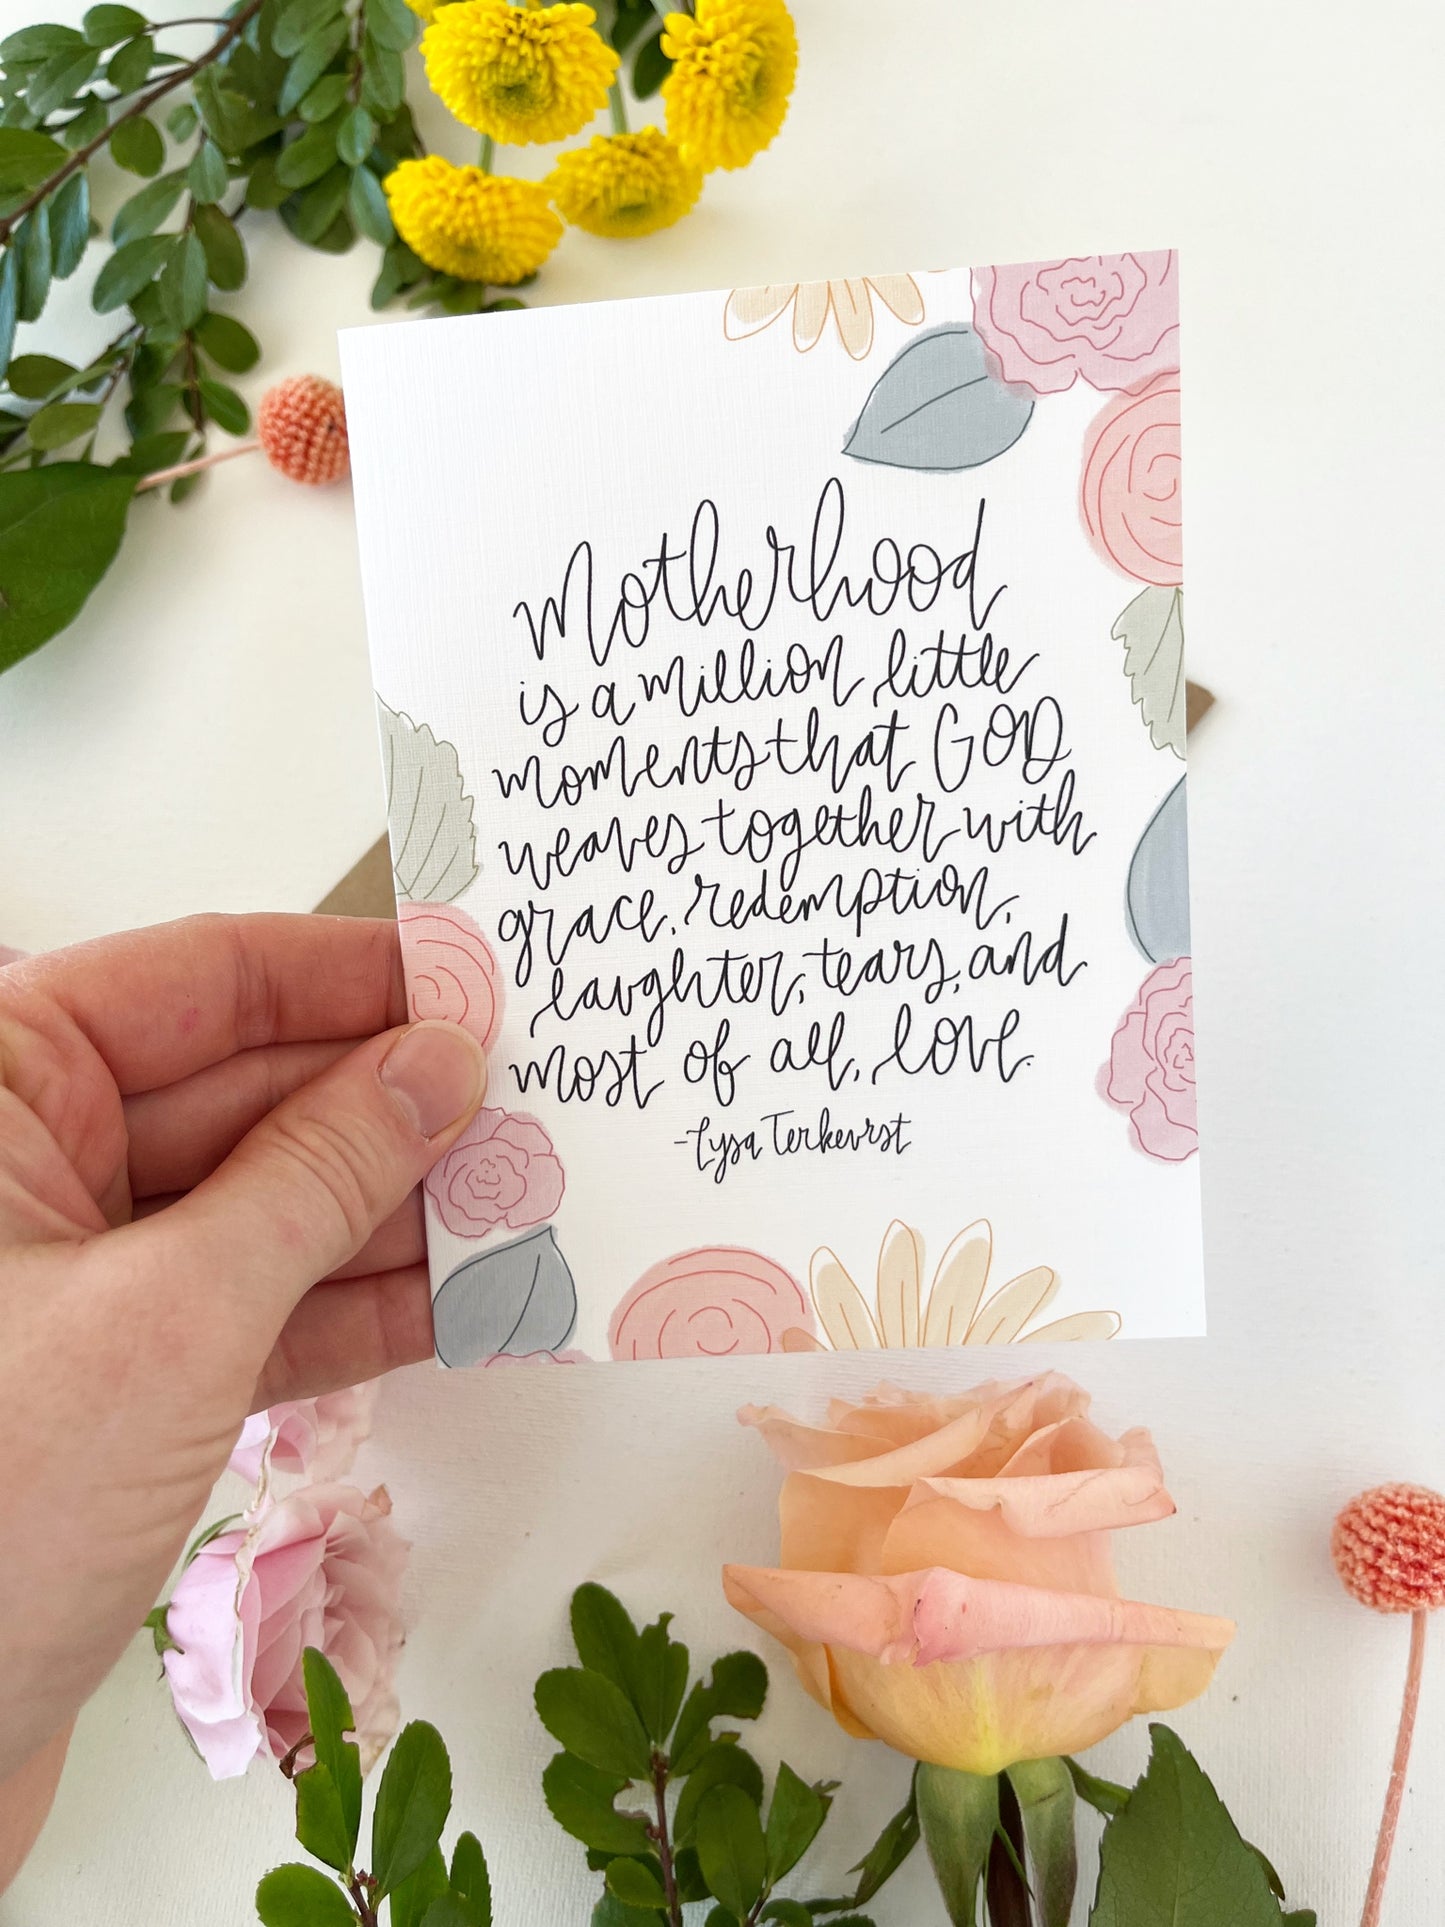 Motherhood
is a million little
moments that GOD
weaves together with
grace, redemption,
laughter, tears, and
most of all, love.
-Lysa Terkeurst